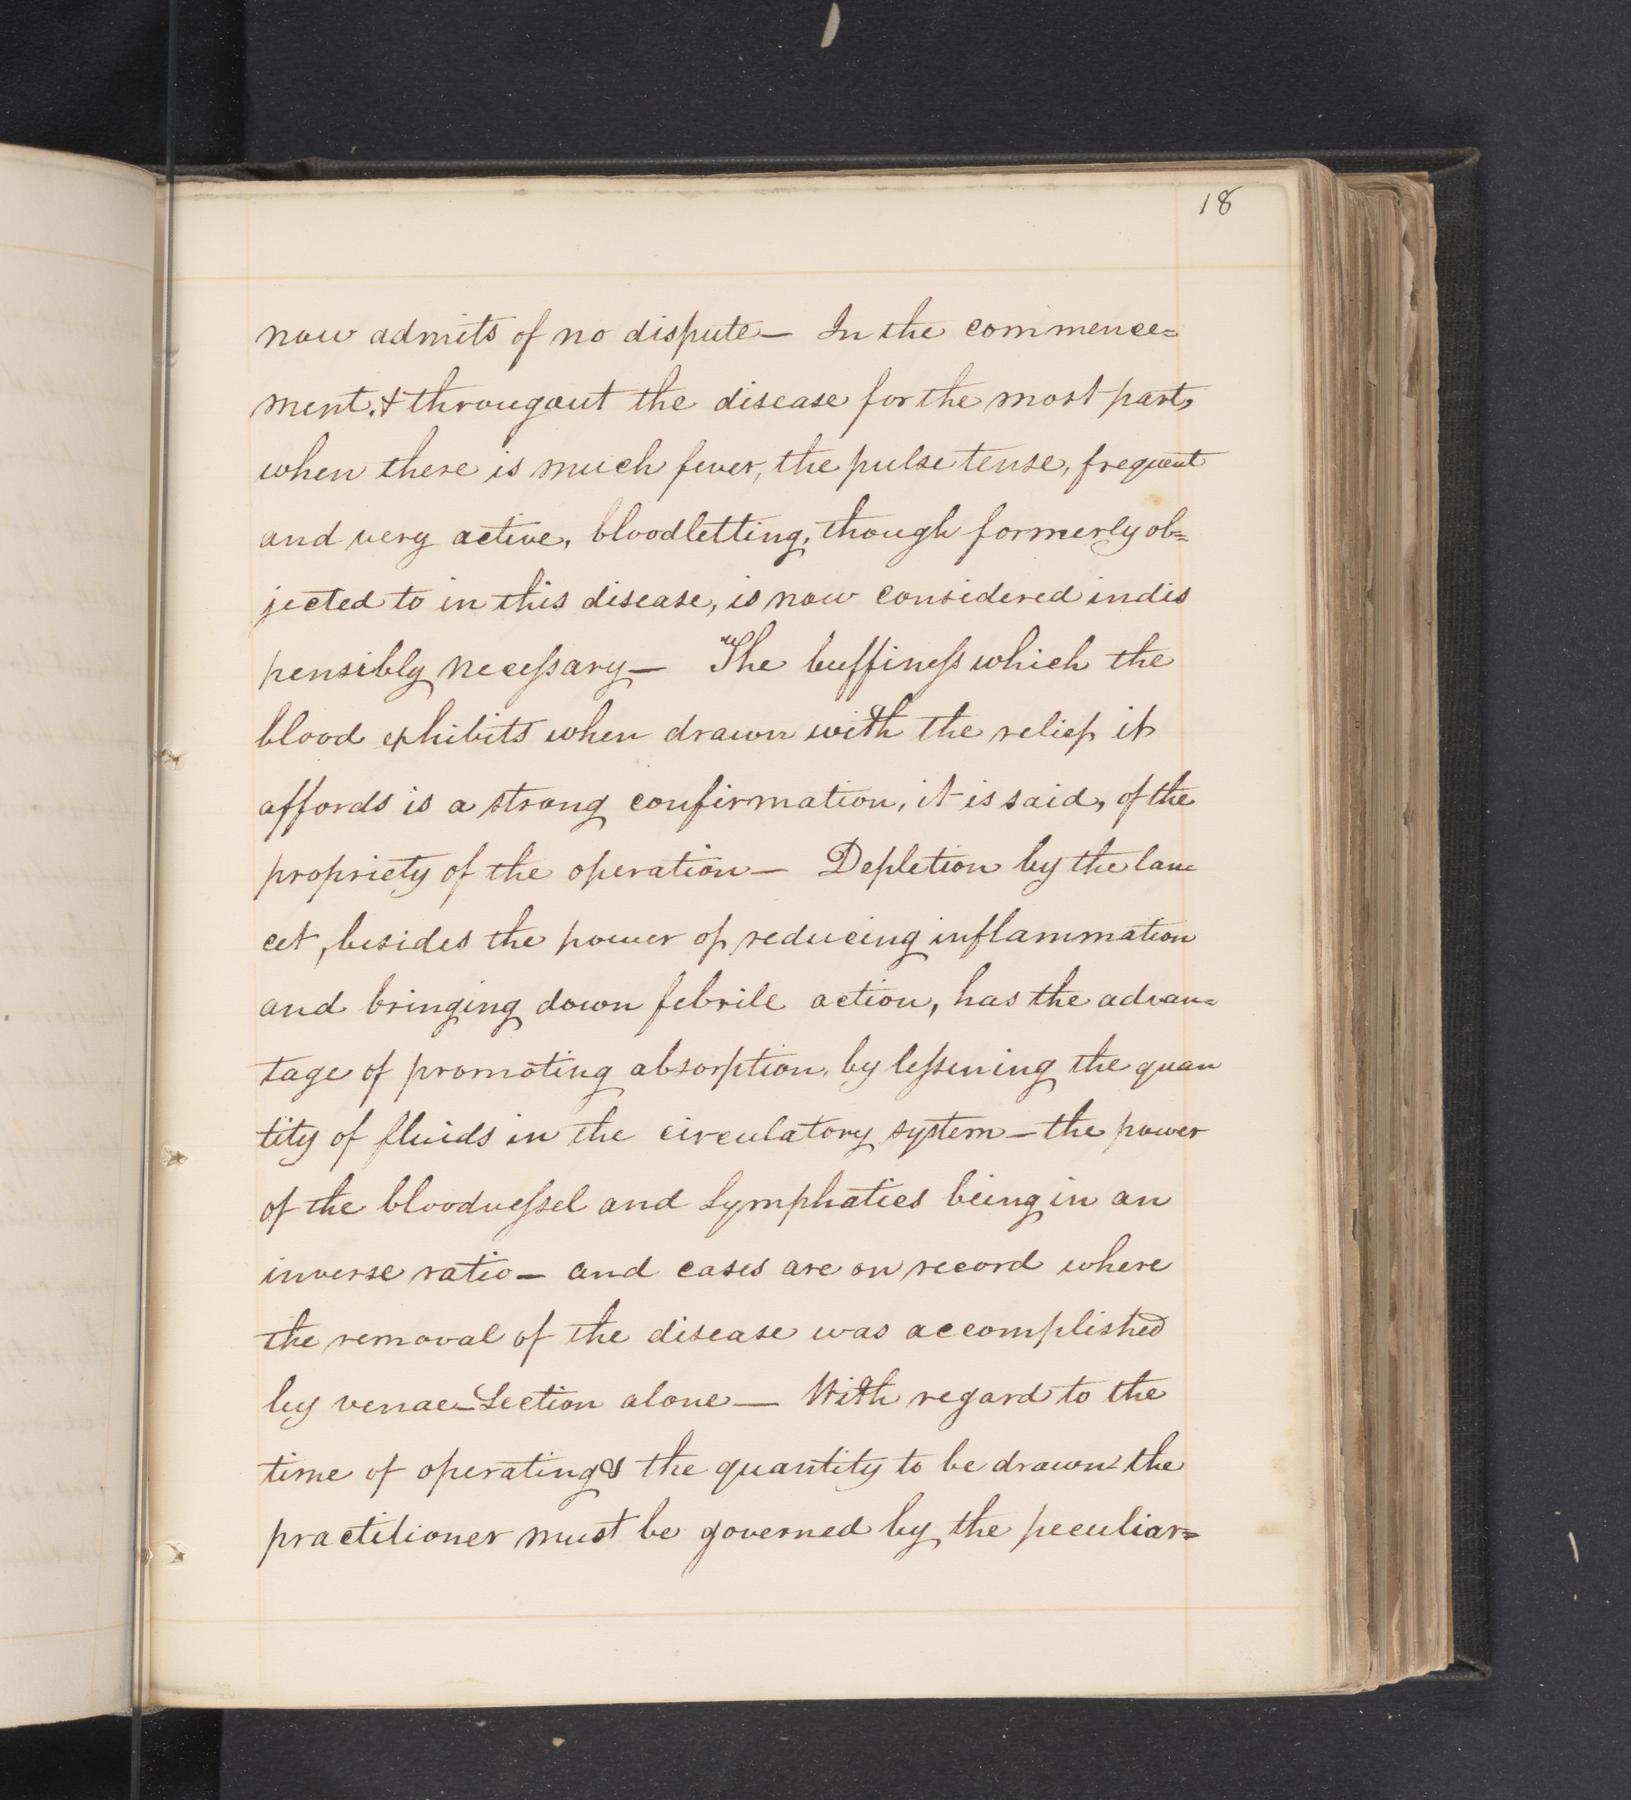 18
now admits of no dispute— In the commence=
ment, & througout the disease for the most part,
when there is much fever, the pulse tense, frequent
and very active, bloodletting, though formerly ob=
jected to in this disease, is now considered indis
pensibly necessary— "The buffiness which the
blood exhibits when drawn with the relief it
affords is a strong confirmation, it is said, of the
propriety of the operation— Depletion by the lan=
cet, besides the power of reducing inflammation
and bringing down febrile action, has the advan=
tage of promoting absorption, by lessening the quan
tity of fluids in the circulatory system— the power
of the bloodvessel and Lymphatics being in an
inverse ratio— and cases are on record where
the removal of the disease was accomplished
by venae-Section alone— With regard to the
time of operating & the quantity to be drawn the
practitioner must be governed by the peculiar=